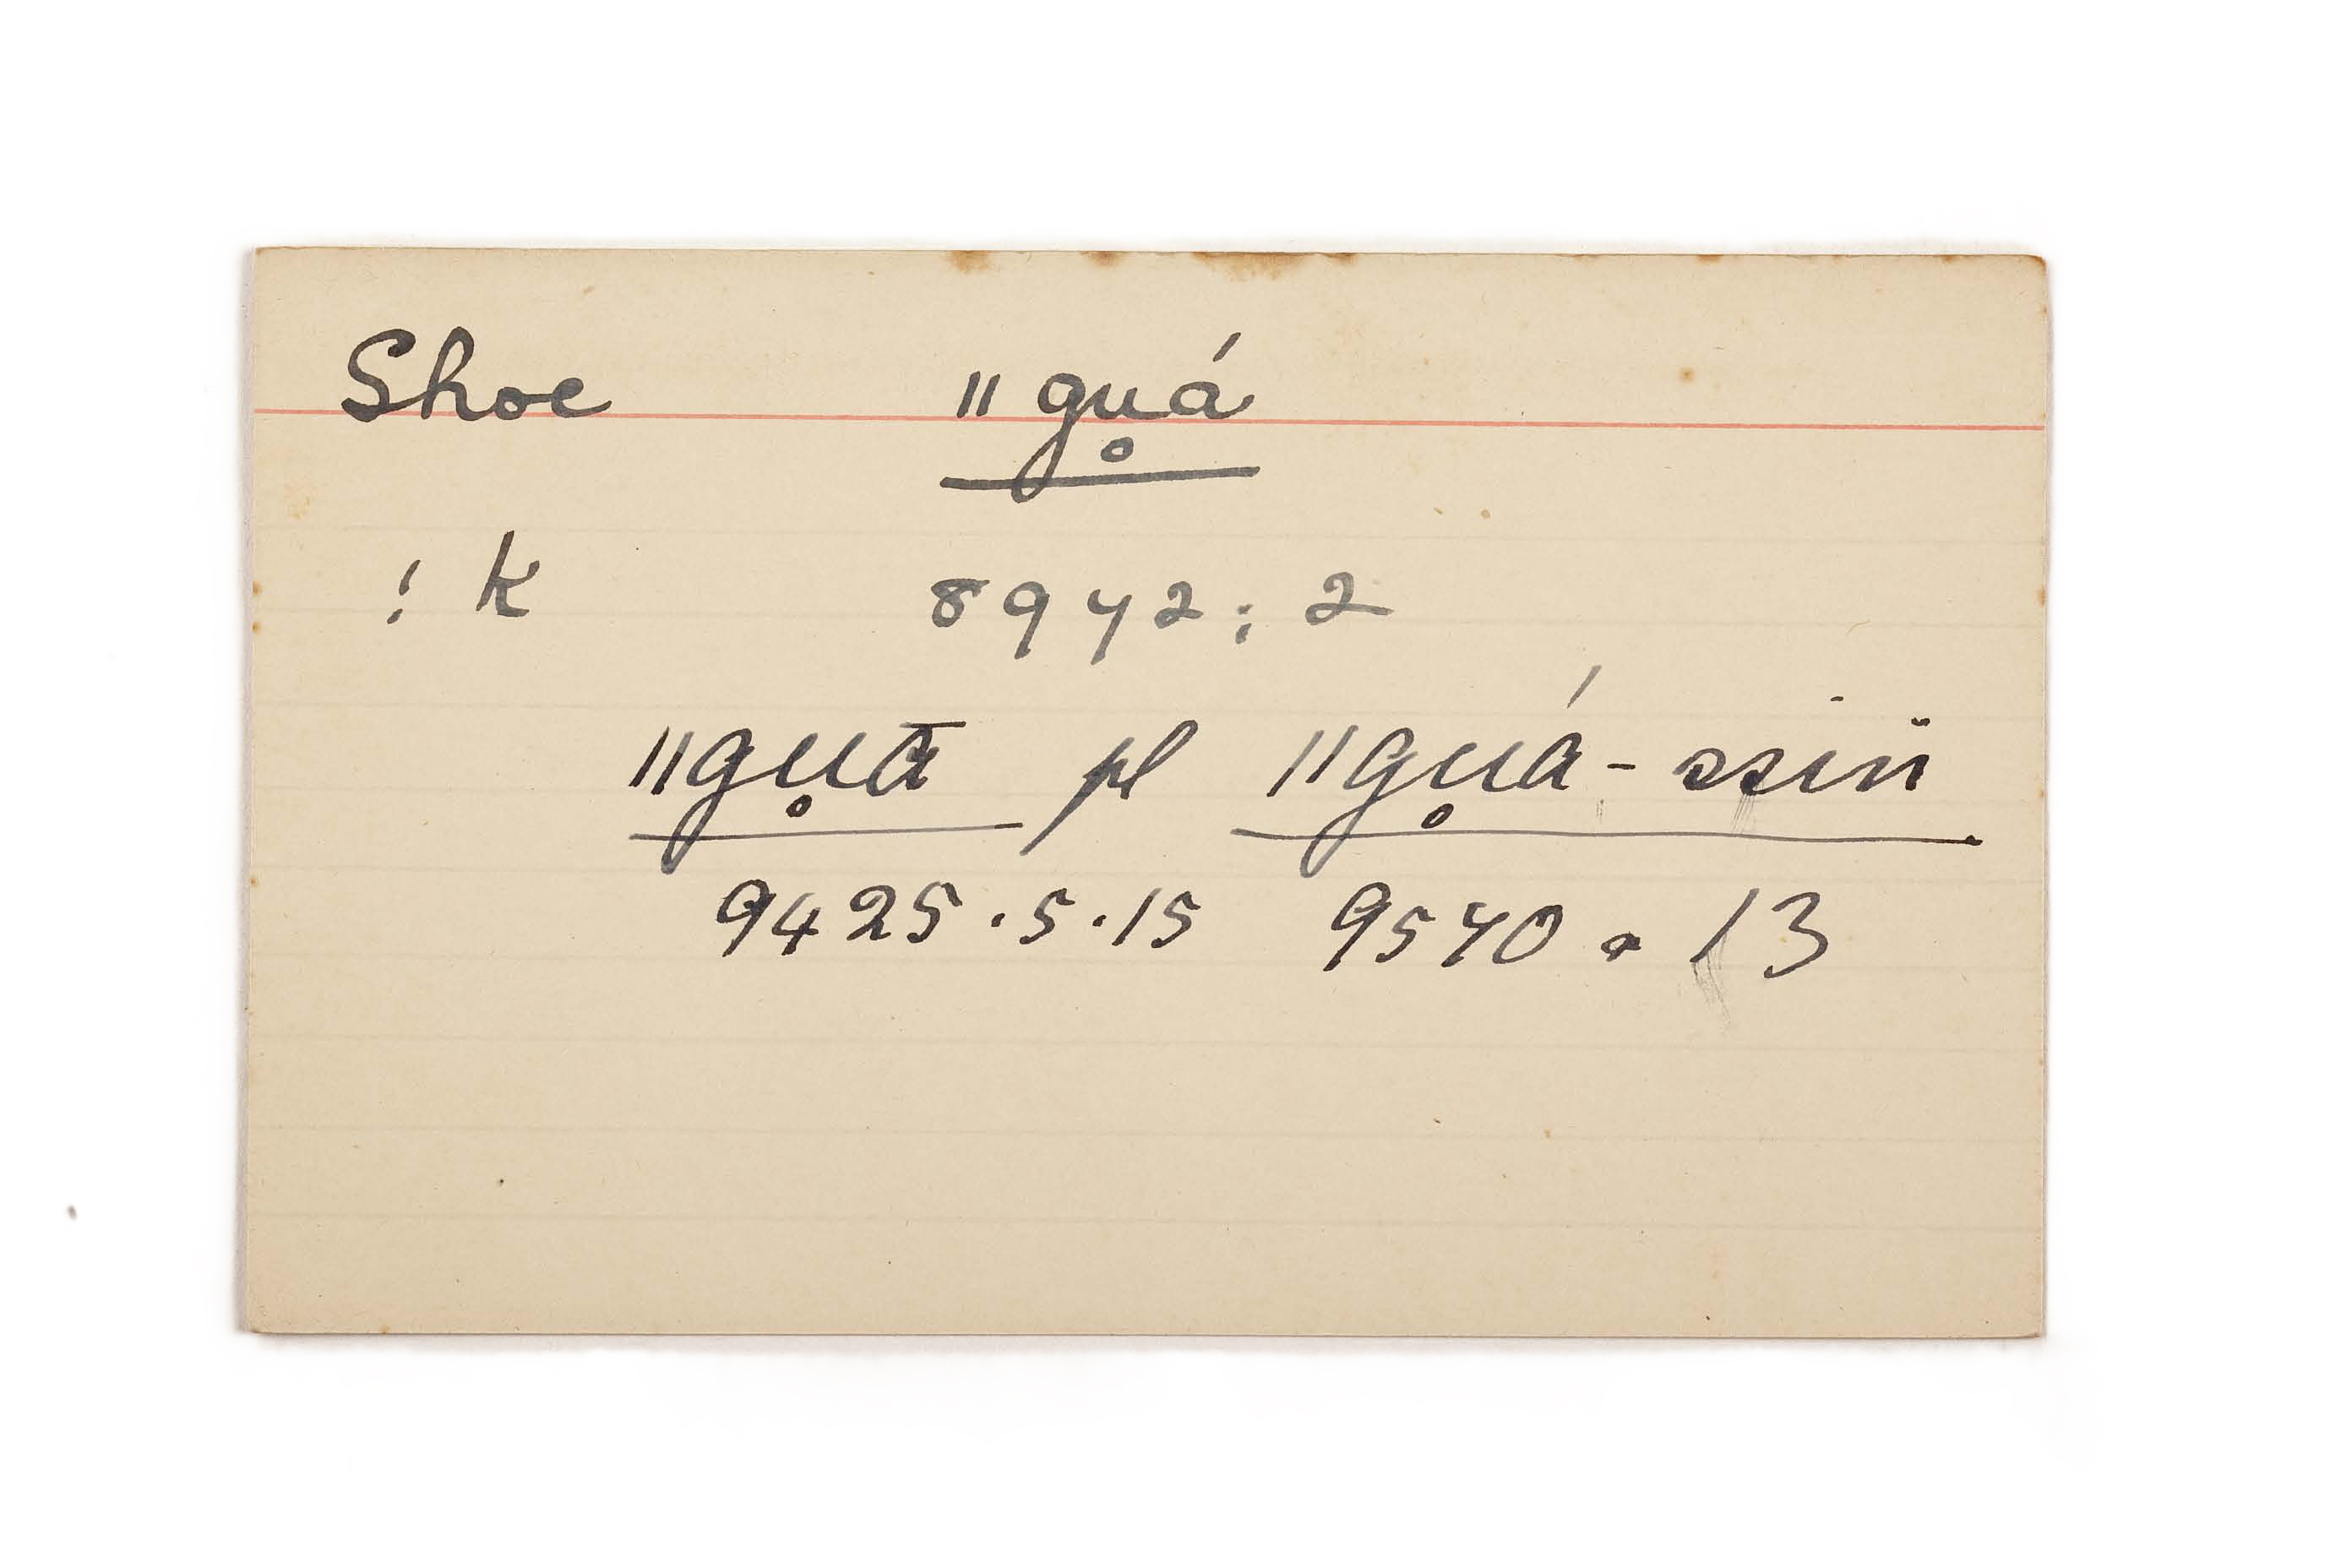 Shoe ǁgu̥á
! k 8942 : 2
ǁgu̥ā pl ǁgu̥á-ssin̆
9425 . 5 . 15 9540 . 13